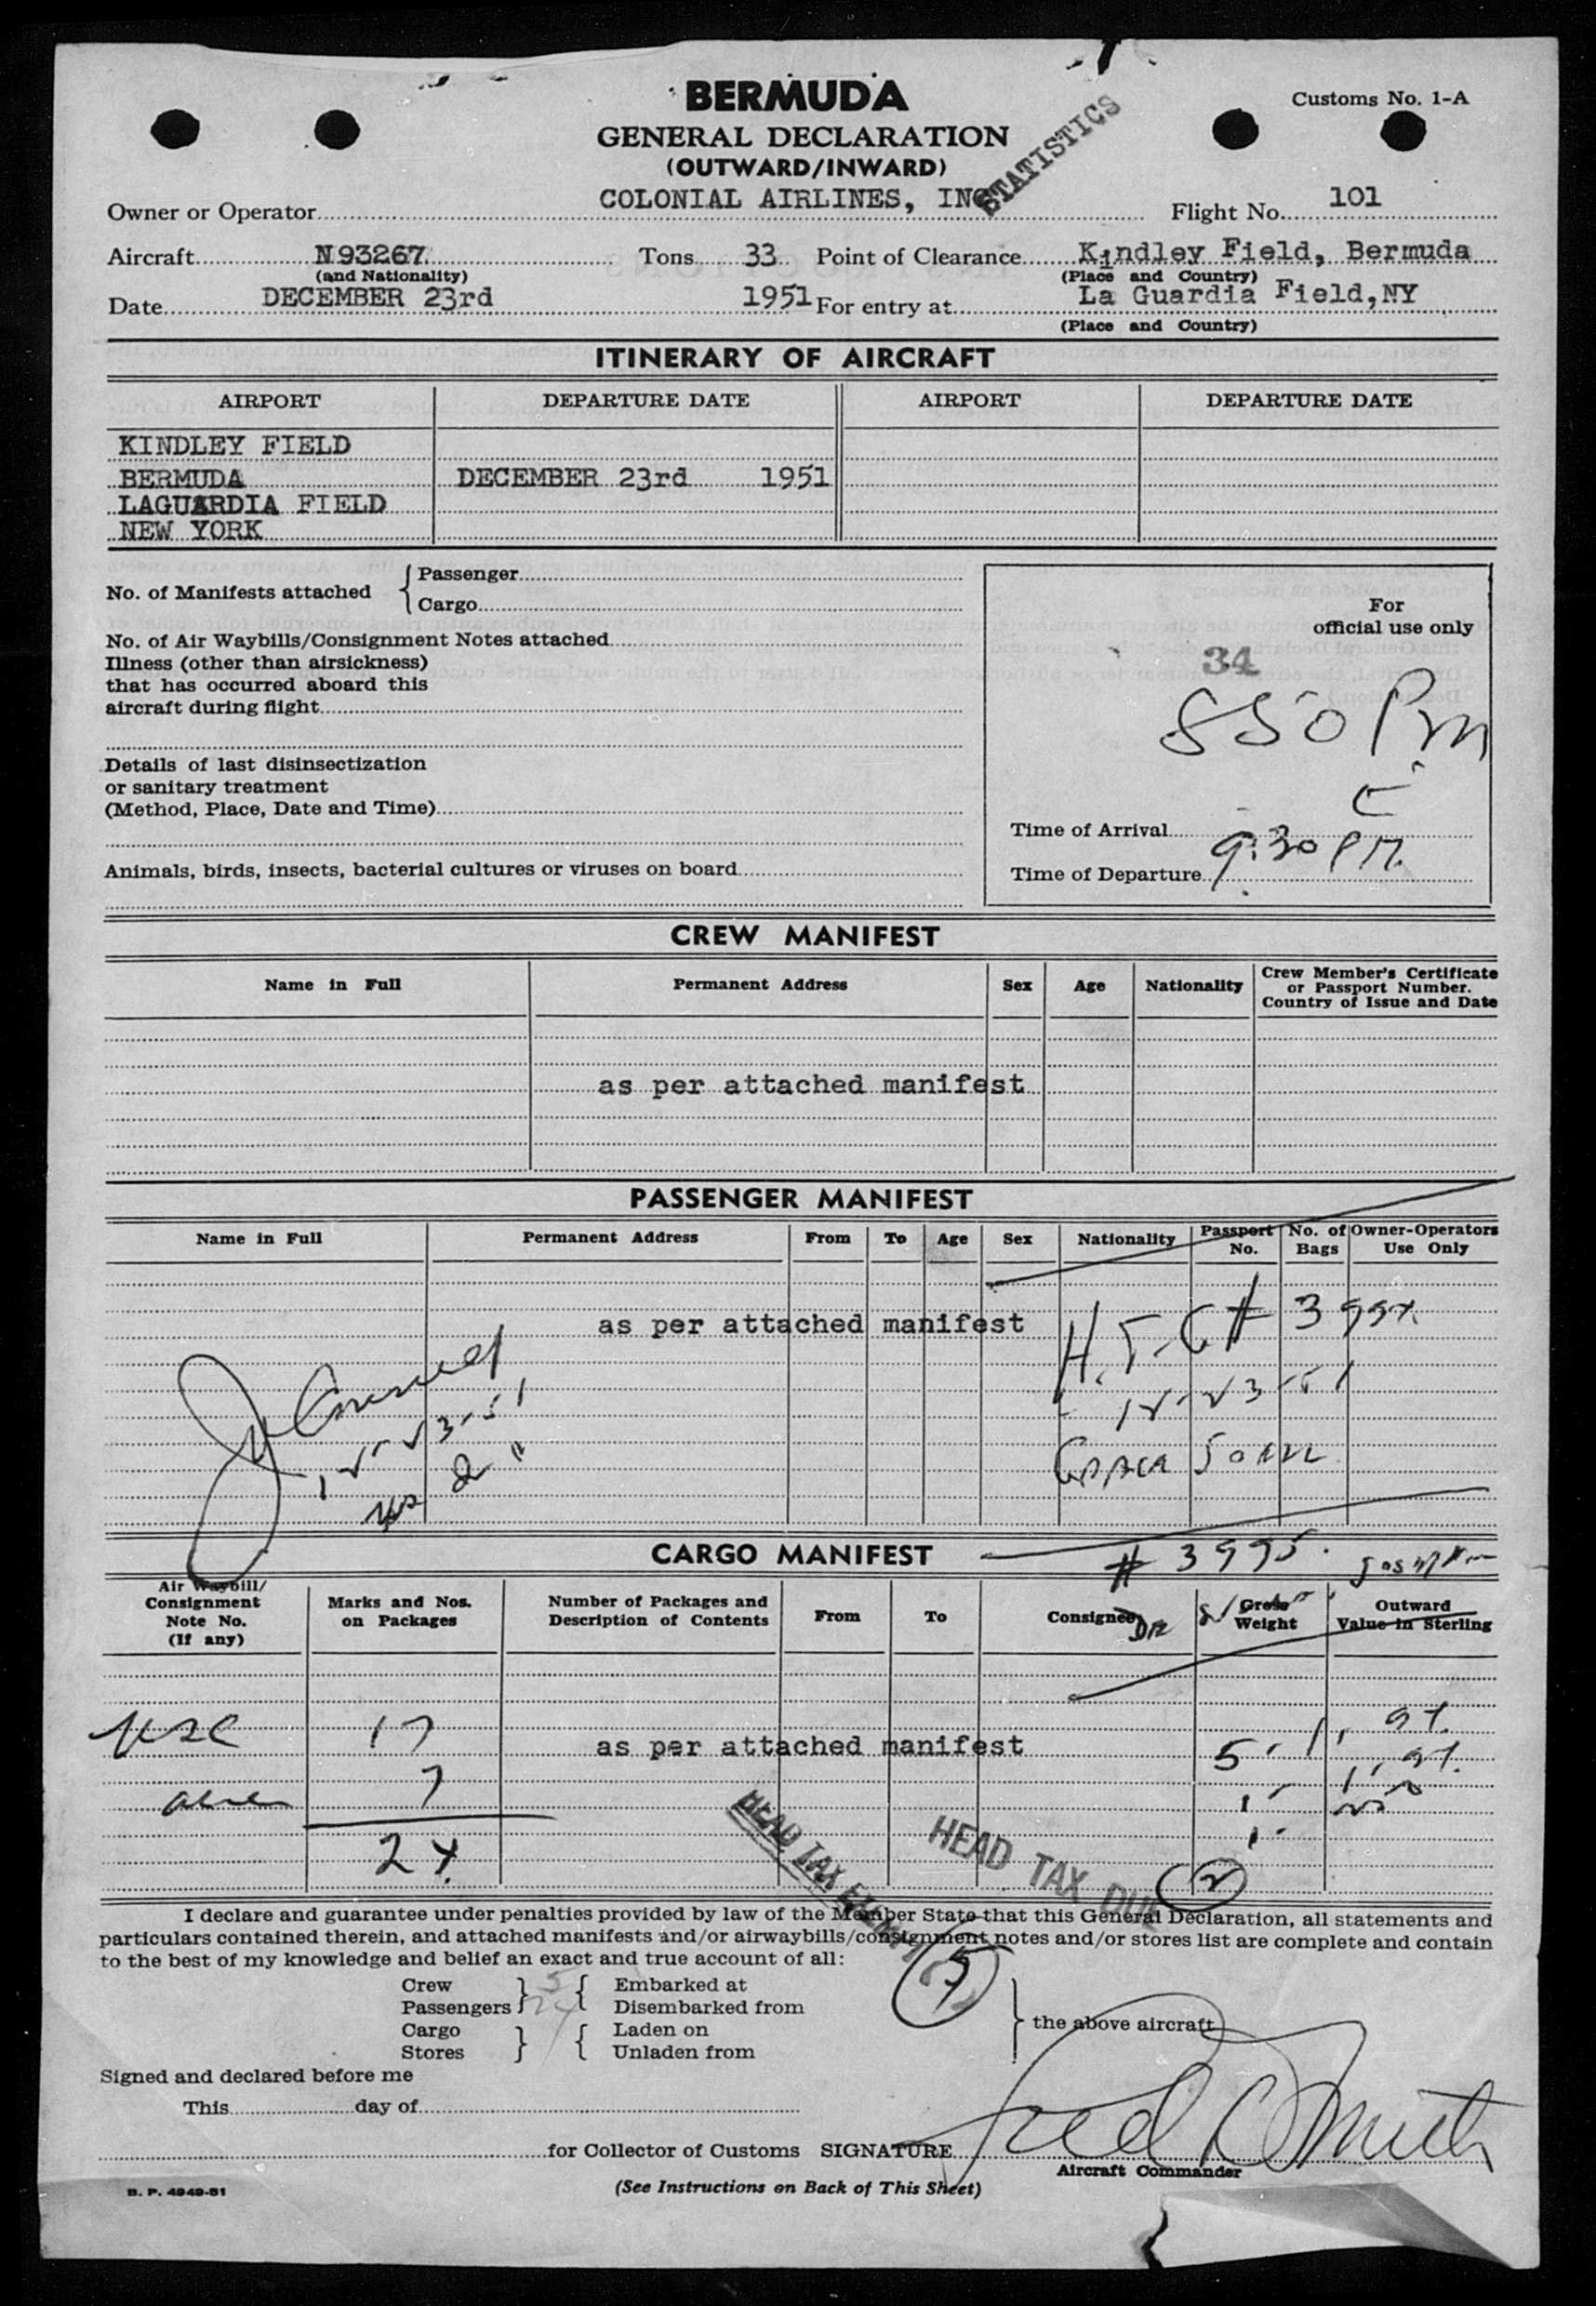 BERMUDA
Customs No. 1-A
GENERAL DECLARATION
(OUTWARD/INWARD)
STATISTICS
Owner or Operator COLONIAL AIRLINES, INC Flight No. 101
Aircraft N93267 Tons 33 Point of Clearance Kindley Field, Bermuda
(and Nationality) (Place and Country)
Date DECEMBER 23rd 1951 For entry at La Guardia Field, NY
(Place and Country)
ITINERARY OF AIRCRAFT
AIRPORT DEPARTURE DATE AIRPORT DEPARTURE DATE
KINDLEY FIELD
BERMUDA DECEMBER 23rd 1951
LAGUARDIA FIELD
NEW YORK
No. of Manifests attached { Passenger
Cargo
No. of Air Waybills/Consignment Notes attached
Illness (other than airsickness)
that has occurred aboard this
aircraft during flight
Details of last disinsectization
or sanitary treatment
(Method, Place, Date and Time)
Animals, birds, insects, bacterial cultures or viruses on board
For
official use only
34
850 Pm
Time of Arrival
Time of Departure 9:30 PM.
CREW MANIFEST
Name in Full Permanent Address Sex Age Nationality Crew Member's Certificate or Passport Number. Country of Issue and Date
as per attached manifest
PASSENGER MANIFEST
Name in Full Permanent Address From To Age Sex Nationality Passport No. No. of Bags Owner-Operators Use Only
as per attached manifest
12-23-51
12-23-51
CARGO MANIFEST
# 3995.
Air Waybill/ Consignment Note No. (If any) Marks and Nos. on Packages Number of Packages and Description of Contents From To Consignee Gross Weight Outward Value in Sterling
USC 17
as per attached manifest
alien 7
24
HEAD TAX EXEMPT
HEAD TAX DUE
2
5
I declare and guarantee under penalties provided by law of the Member State that this General Declaration, all statements and
particulars contained therein, and attached manifests and/or airwaybills/consignment notes and/or stores list are complete and contain
to the best of my knowledge and belief an exact and true account of all:
Crew } 5 { Embarked at
Passengers 24 Disembarked from
Cargo } { Laden on
Stores Unladen from
} the above aircraft
Signed and declared before me
This day of
for Collector of Customs SIGNATURE Fred C Smith
Aircraft Commander
B. P. 4949-51
(See Instructions on Back of This Sheet)